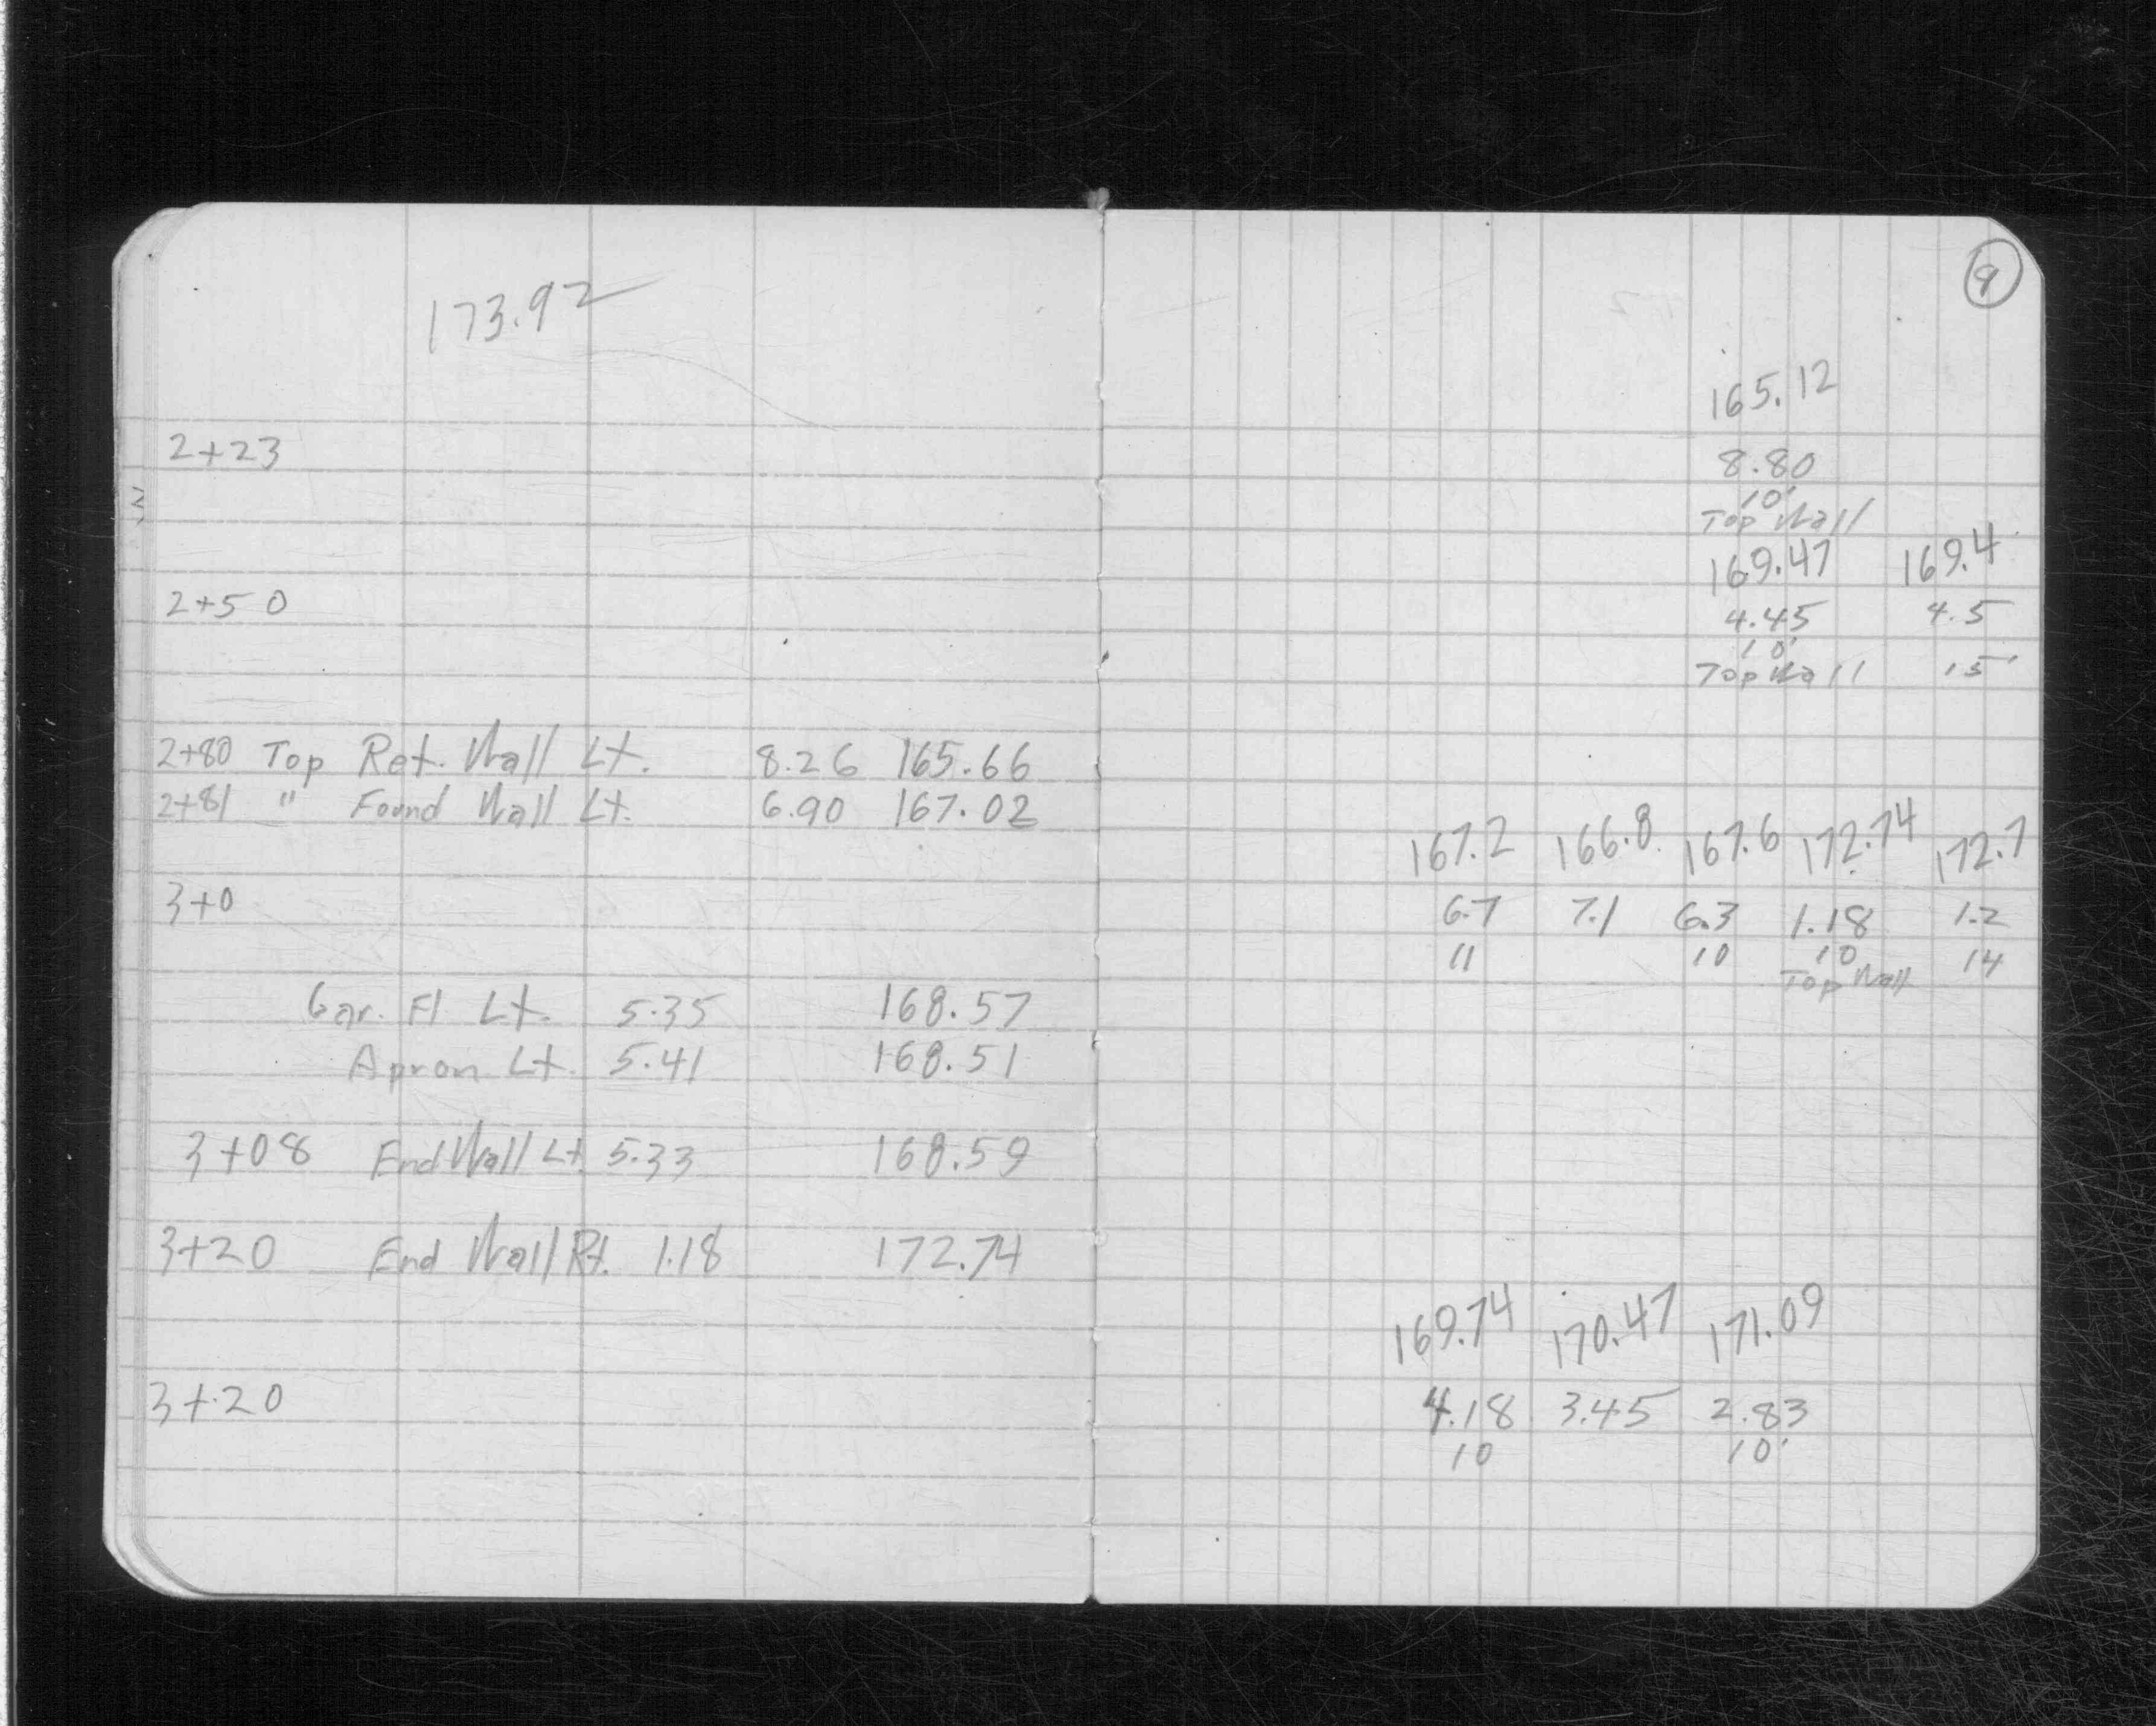 173.92
2+23
2+50
2+80 Top Ret. Wall Lt. 8.26 165.66
2+81 " Found Wall Lt. 6.90 167.02
3+0
Gar. Fl Lt. 5.35 168.57
Apron Lt. 5.41 168.51
3+08 End Wall Lt 5.33 168.59
3+20 End Wall Rt. 1.18 172.74
3+20
9
165.12
8.80
10'
Top Wall
169.47 169.4
4.45 4.5
10' 15'
Top Wall
167.2 166.8 167.6 172.74 172.7
6.7 7.1 6.3 1.18 1.2
11 10 10 14
Top Wall
169.74 170.47 171.09
4.18 3.45 2.83
10 10'